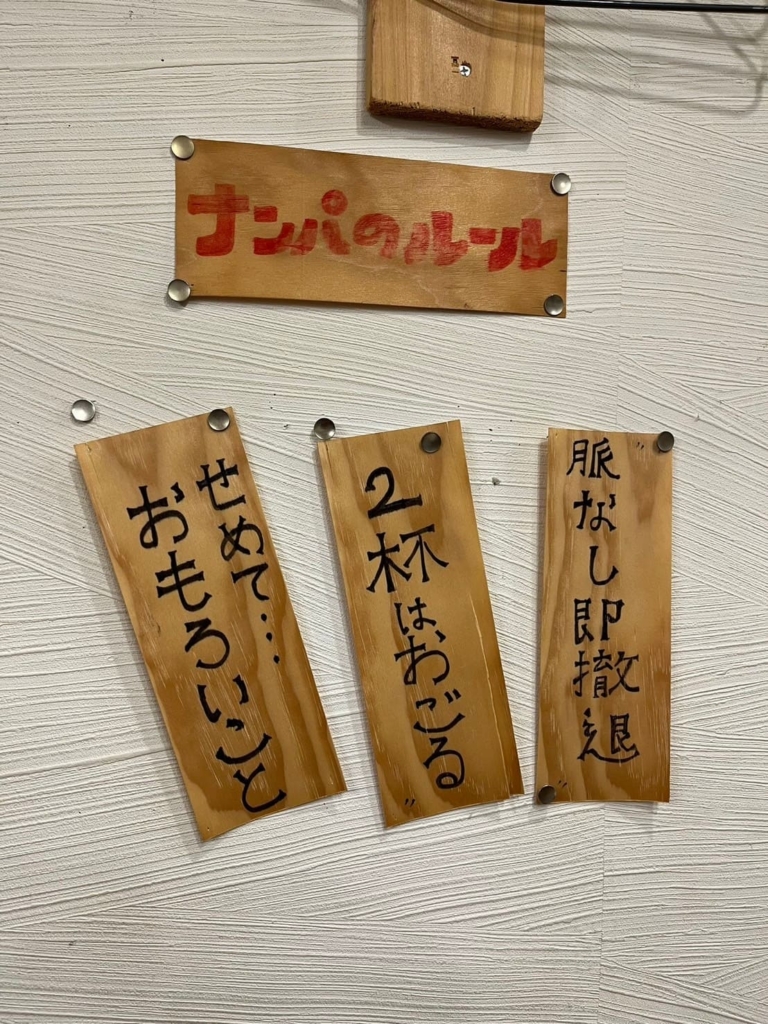 ナンパのルール
脈なし即撤退
2杯は、おごる
せめて…
おもろいこと